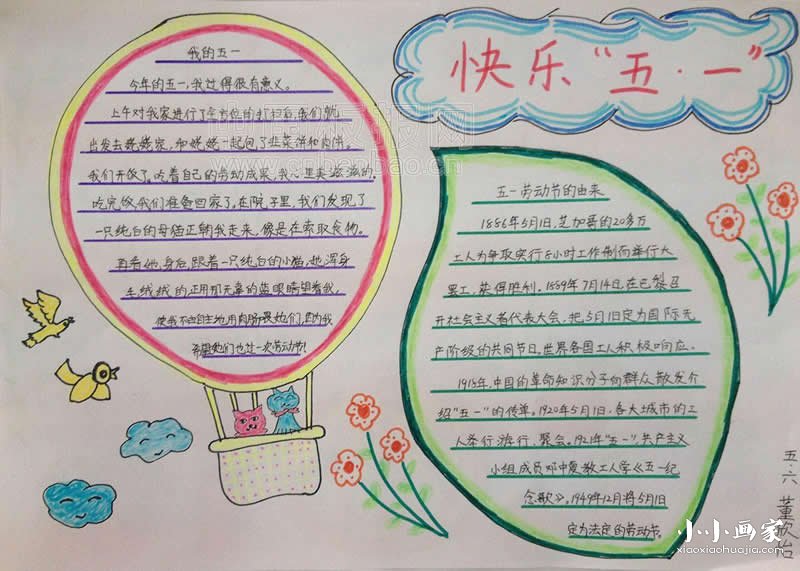 快乐“五·一”
我的五一
今年的五一,我过得很有意义。
上午对我家进行了全方位的打扫后,我们就
出发去姥姥家,和姥姥一起包了韭菜饼和肉饼。
我们开饭了。吃着自己的劳动成果,我心里美滋滋的。
吃完饭我们准备回家了。在院子里,我们发现了
一只纯白的母猫正朝我走来,像是在索取食物。
再看她,身后跟着一只纯白的小猫,她浑身
毛绒绒的正用那无辜的蓝眼睛望着我,
使我不由自主地用肉肠喂她们,因为我
希望她们也过一次劳动节!
五一劳动节的由来
1886年5月1日,芝加哥的20多万
工人为争取实行8小时工作制而举行大
罢工,获得胜利。1889年7月14日,在巴黎召
开社会主义者代表大会,把5月1日定为国际无
产阶级的共同节日。世界各国工人积极响应。
1918年,中国的革命知识分子向群众散发介
绍“五一”的传单。1920年5月1日,各大城市的工
人举行游行、聚会。1921年“五一”,共产主义
小组成员邓中夏教工人学《五一纪
念歌》。1949年12月将5月1日
定为法定的劳动节。
五·六 董欣怡
小小画家
xiaoxiaohuajia.com